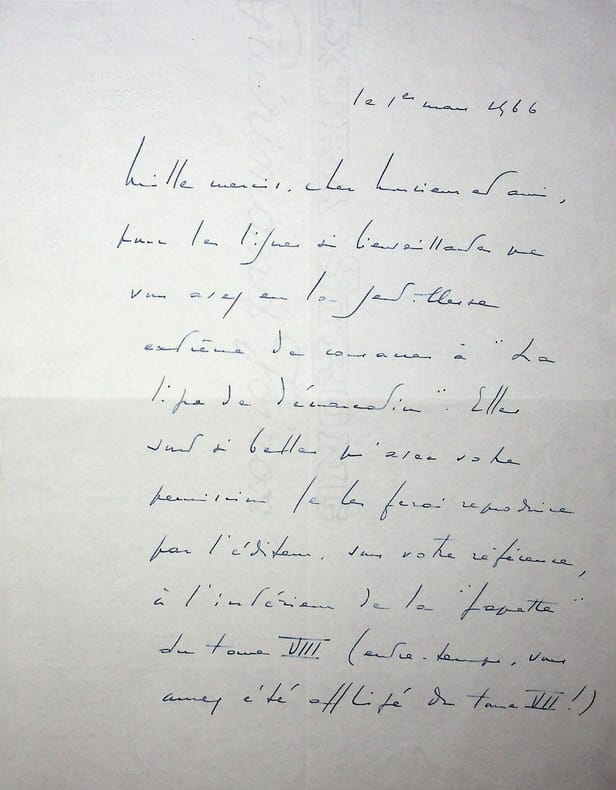 le 1er mars 1966
Mille mercis, cher Monsieur et ami,
pour les lignes si bienveillantes que
vous avez eu la gentillesse
extrême de consacrer à "La
ligne de démarcation". Elles
sont si belles qu'avec votre
permission je les ferai reproduire
par l'éditeur, sous votre référence,
à l'intérieur de la "jaquette"
du tome VIII (entre-temps, vous
aurez été affligé du tome VII!)